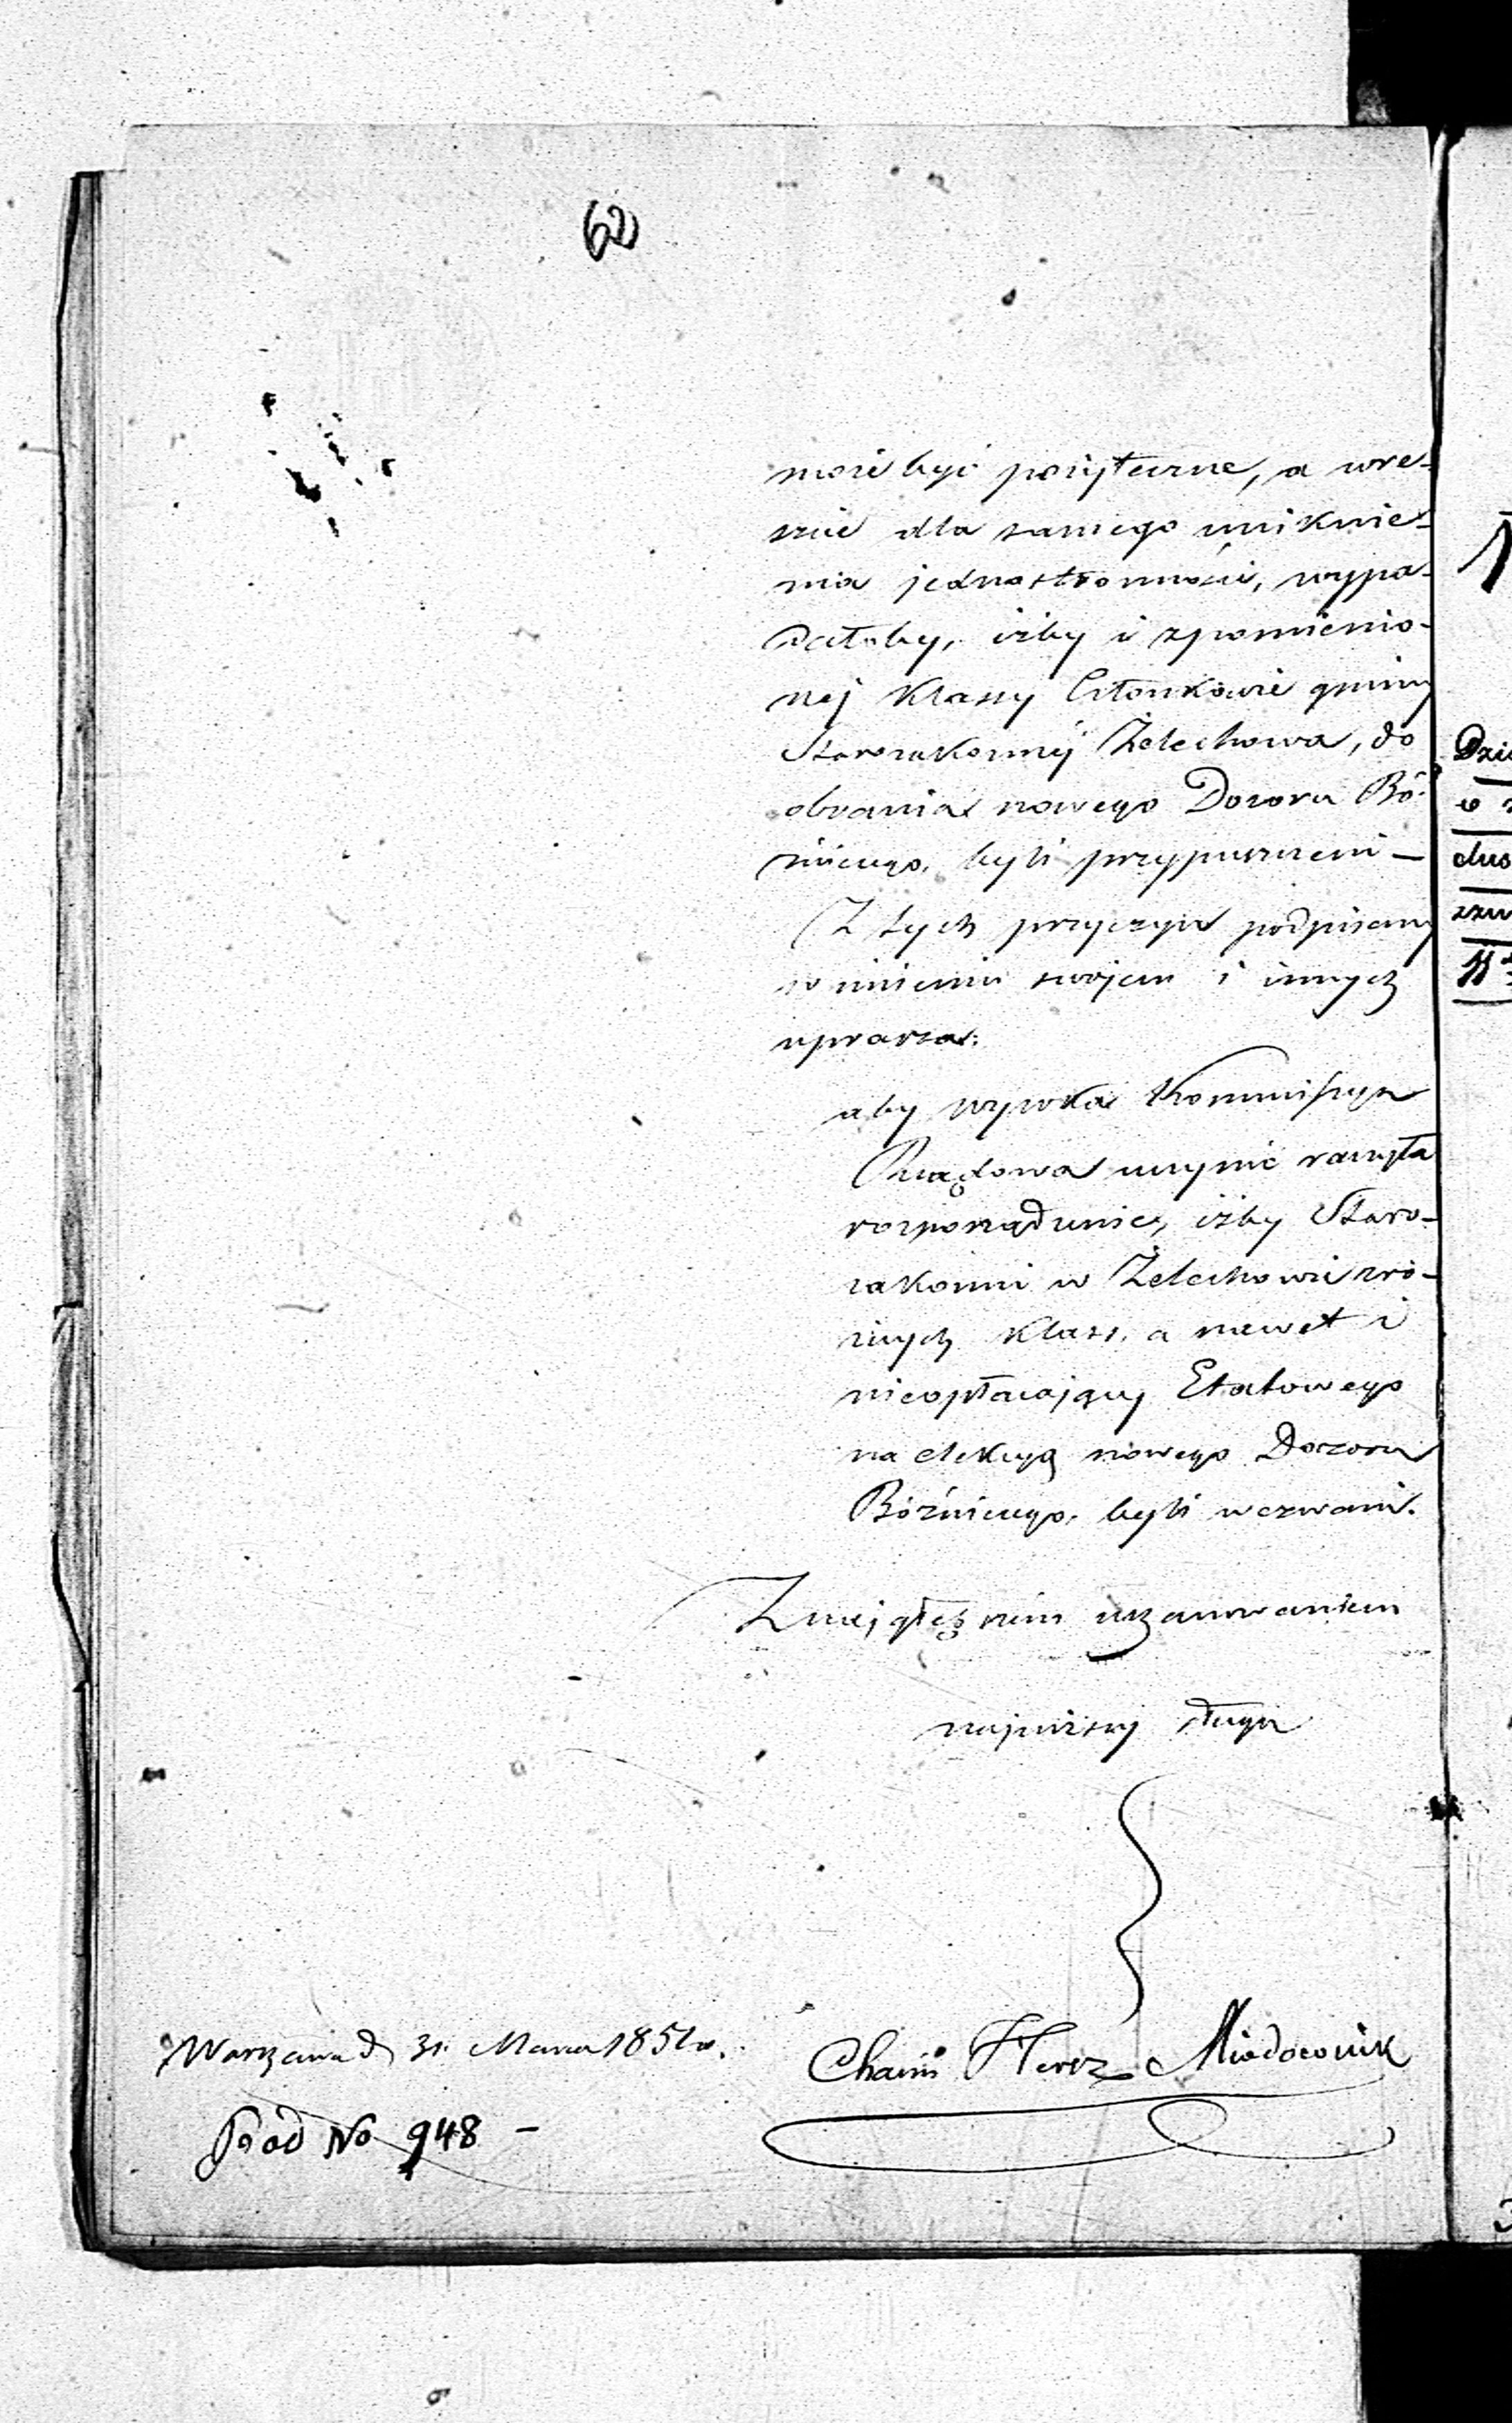 62
może być pożyteczne, a wre-
szcie dla samego uniknie-
nia jednostronności, wypa-
dałoby, iżby i z pomienio-
nej Klassy Członkowie gminy
Starozakonnej Żelechowa, do
obrania nowego Dozoru Bó-
żniczego, byli przypuszczeni —
Z tych przyczyn podpisany
w imieniu swojem i innych
uprasza:
aby wysoka Kommissya
Rządowa uczynić raczyła
rozporządzenie, iżby Staro-
zakonni w Żelechowie z ró-
żnych Klass, a nawet i
nieopłacający Etatowego
na elekcyą nowego Dozoru
Bóżniczego, byli wezwani.
Z najgłębszem uszanowaniem
najniższy sługa
Warszawa d 31 Marca 1851 r.
Chaim Hersz Miodownik
Pod No 948 —